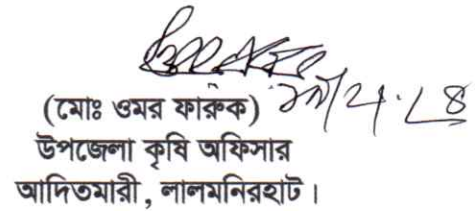 (মোঃ ওমর ফারুক)
উপজেলা কৃষি অফিসার
আদিতমারী, লালমনিরহাট।